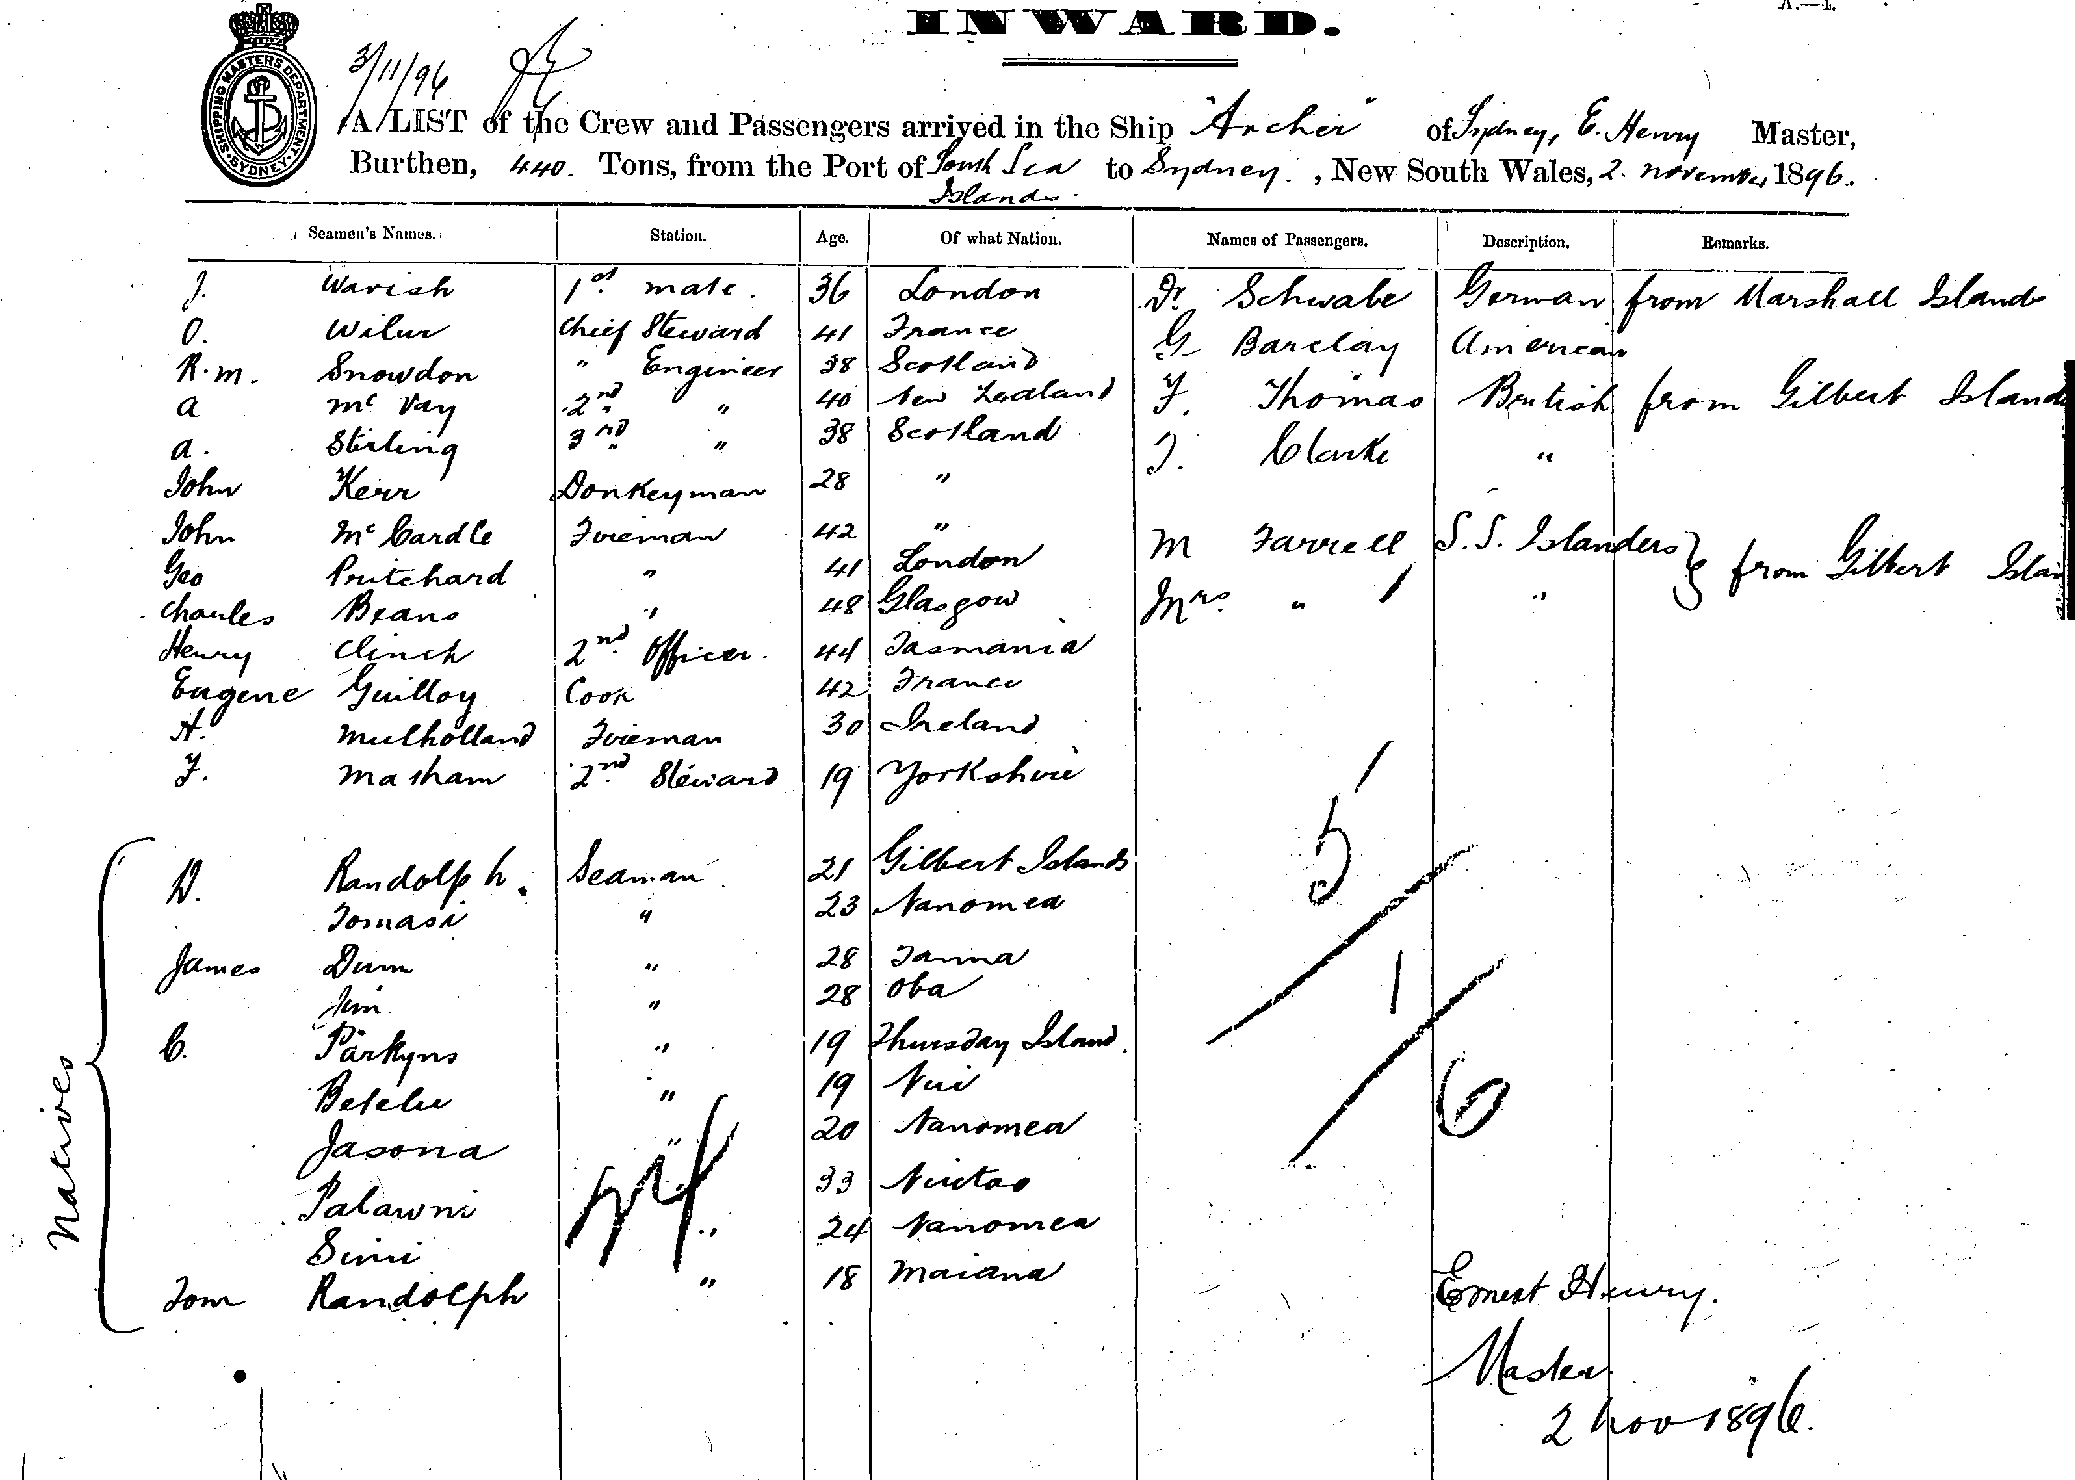 INWARD.
A.—1.
SHIPPING MASTERS DEPARTMENT SYDNEY
3/11/96
A LIST of the Crew and Passengers arrived in the Ship "Archer" of Sydney, E. Henry Master,
Burthen, 440. Tons, from the Port of South Sea Islands to Sydney, New South Wales, 2. November 1896.
Seamen's Names. Station. Age. Of what Nation. Names of Passengers. Description. Remarks.
J. Warish 1st mate. 36 London Dr. Schwabe German from Marshall Islands
O. Wilur Chief Steward 41 France G Barclay American
R.M. Snowdon " Engineer 38 Scotland
A Mc Vay 2nd " 40 New Zealand F. Thomas British from Gilbert Islands
A. Stirling 3rd " 38 Scotland J. Clarke "
John Kerr Donkeyman 28 "
John McCardle Fireman 42 " M Farrell S.S. Islanders } from Gilbert Islan
Geo Pritchard " 41 London
Charles Beans " 48 Glasgow Mrs. " "
Henry Clinch 2nd Officer. 44 Tasmania
Eugene Guilloy Cook 42 France
H. Mulholland Fireman 30 Ireland
F. Masham 2nd Steward 19 Yorkshire
Natives
D. Randolph. Seaman 21 Gilbert Islands
Tomasi " 23 Nanomea
James Dum " 28 Tanna
Jim " 28 Oba
C. Parkyns " 19 Thursday Island.
Betelu " 19 Nui
Jasona " 20 Nanomea
Palawni 33 Niutao
Simi " 24 Nanomea
Tom Randolph " 18 Maiana
5
1
6
24
Ernest Henry.
Master
2 Nov 1896.